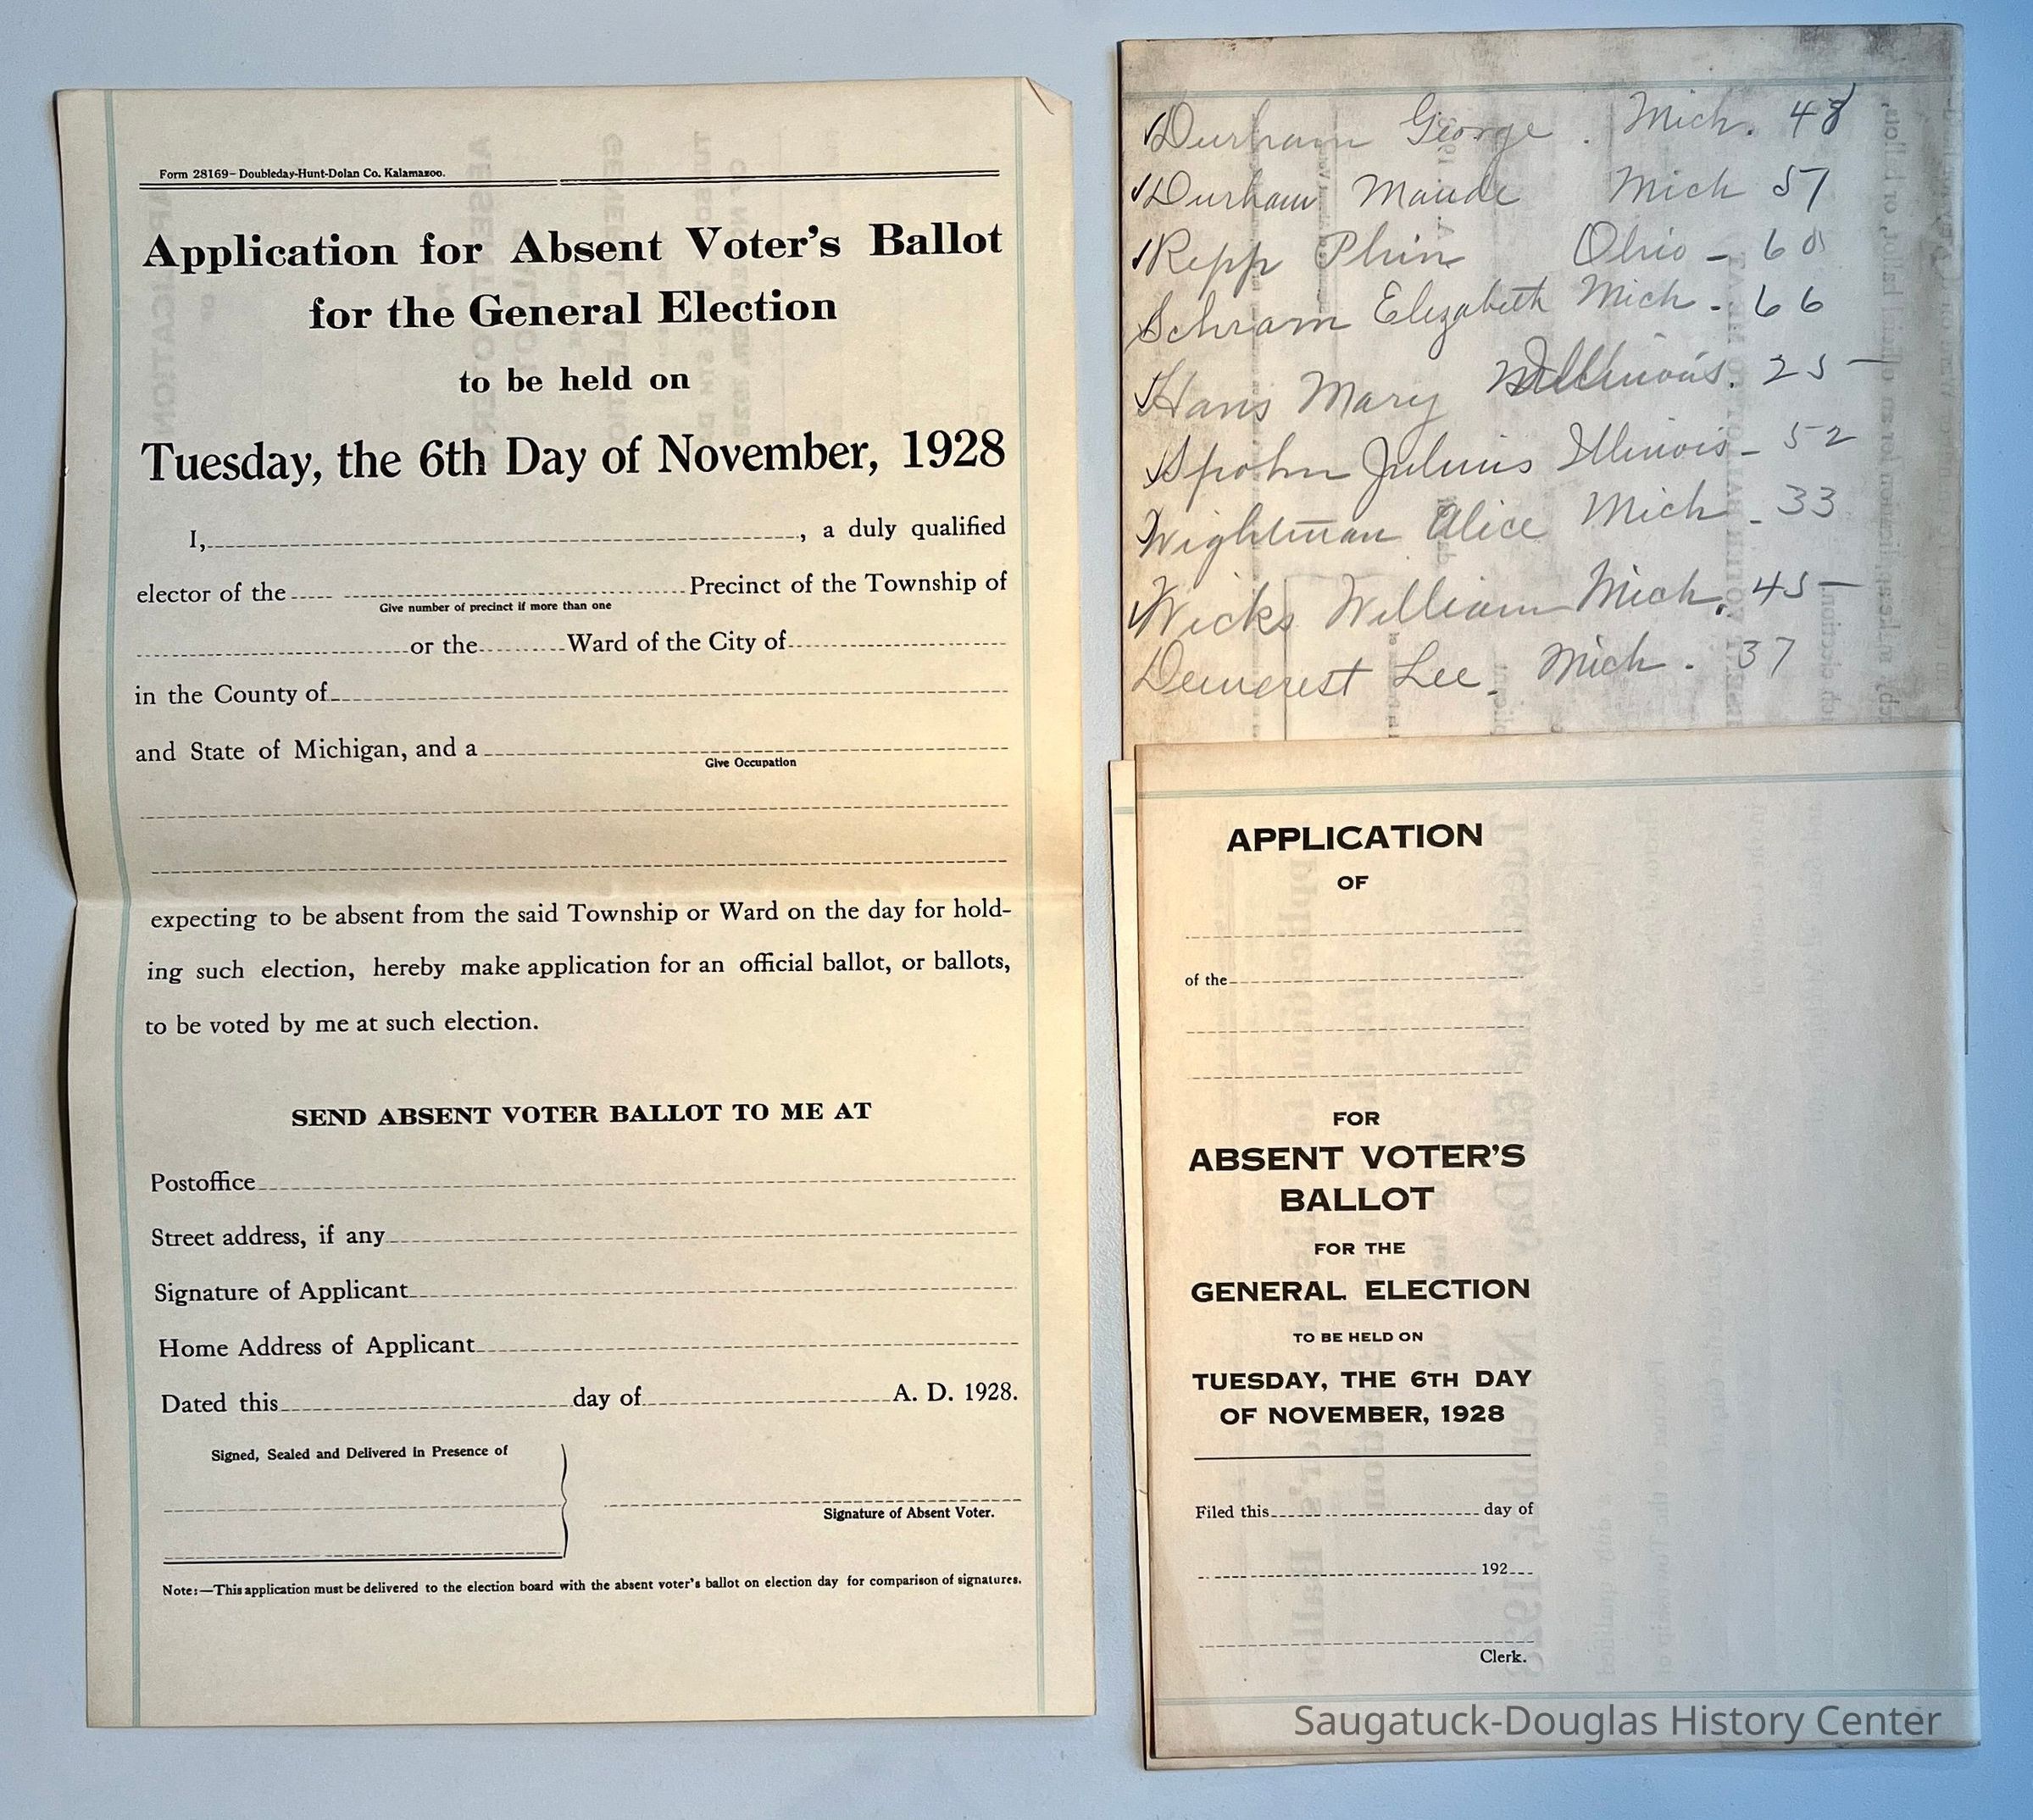 Form 28169- Doubleday-Hunt-Dolan Co. Kalamazoo.
Application for Absent Voter's Ballot
for the General Election
to be held on
Tuesday, the 6th Day of November, 1928
I, , a duly qualified
elector of the Precinct of the Township of
Give number of precinct if more than one
or the Ward of the City of
in the County of
and State of Michigan, and a
Give Occupation
expecting to be absent from the said Township or Ward on the day for hold-
ing such election, hereby make application for an official ballot, or ballots,
to be voted by me at such election.
SEND ABSENT VOTER BALLOT TO ME AT
Postoffice
Street address, if any
Signature of Applicant
Home Address of Applicant
Dated this day of A. D. 1928.
Signed, Sealed and Delivered in Presence of
Signature of Absent Voter.
Note:—This application must be delivered to the election board with the absent voter's ballot on election day for comparison of signatures.
Durham George. Mich. 48
Durham Maude Mich 57
Repp Phin Ohio - 60
Schram Elizabeth Mich - 66
Hans Mary Illinois. 25-
Spohn Julius Illinois - 52
Wightman Alice Mich - 33
Wicks William Mich. 45-
Demerest Lee. Mich. 37
APPLICATION
OF
of the
FOR
ABSENT VOTER'S
BALLOT
FOR THE
GENERAL ELECTION
TO BE HELD ON
TUESDAY, THE 6TH DAY
OF NOVEMBER, 1928
Filed this day of
192
Clerk.
Saugatuck-Douglas History Center